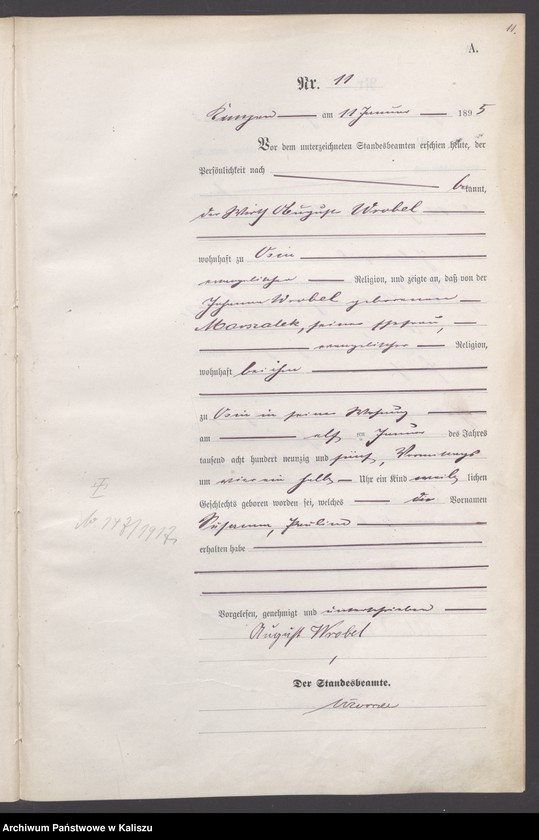 11.
A.
Nr. 11
am 11 Januar 1895
Vor dem unterzeichneten Standesbeamten erschien heute, der
Persönlichkeit nach
bekannt,
der Wirth August Wrobel
wohnhaft zu Osin
evangelischer Religion, und zeigte an, daß von der
Johanna Wrobel geborenen
Marszalek, seiner Ehefrau,
evangelischer Religion,
wohnhaft bei ihm
zu Osin in seiner Wohnung
am elf ten Januar des Jahres
tausend acht hundert neunzig und fünf, Vormittags
um vier ein halb Uhr ein Kind weib lichen
Geschlechts geboren worden sei, welches die Vornamen
Susanna, Pauline
erhalten habe
Vorgelesen, genehmigt und unterschrieben
August Wrobel
Der Standesbeamte.
No 147/1917
Archiwum Państwowe w Kaliszu